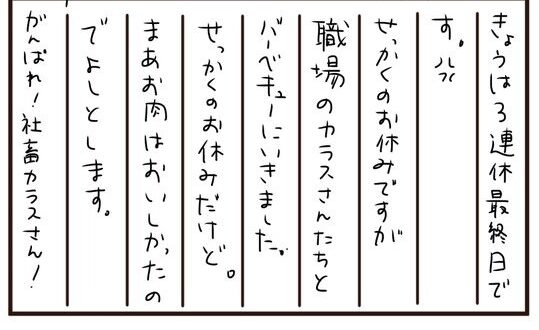 きょうは3連休最終日で
す。ハハ
せっかくのお休みですが
職場のカラスさんたちと
バーベキューにいきました。
せっかくのお休みだけど。
まあお肉はおいしかったの
でよしとします。
がんばれ!社畜カラスさん!